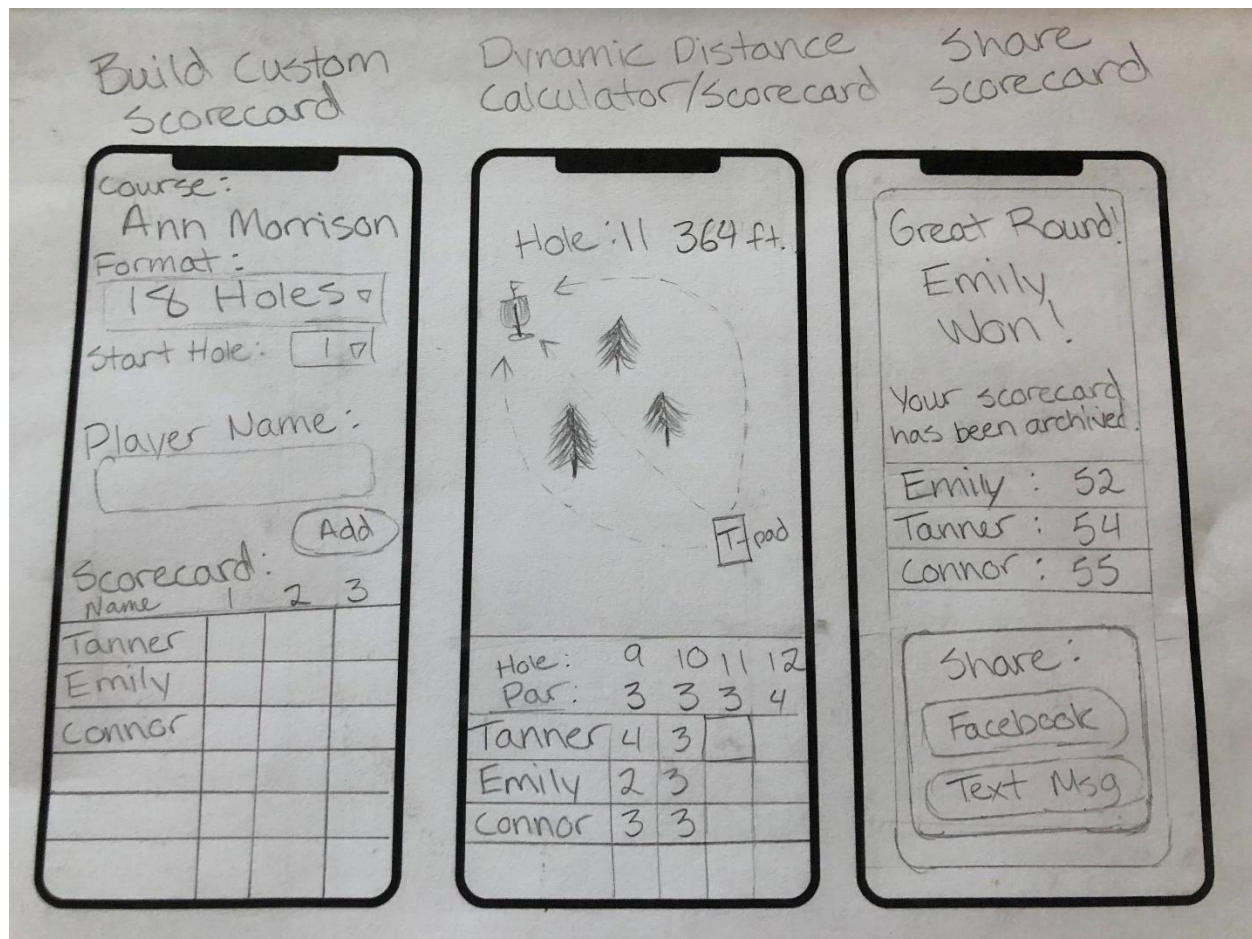 Build Custom
Scorecard
Course:
Ann Morrison
Format:
18 Holes
Start Hole: 1
Player Name:
Add
Scorecard:
Name 1 2 3
Tanner
Emily
Connor
Dynamic Distance
Calculator/Scorecard
Hole: 11 364 ft.
T-pad
Hole: 9 10 11 12
Par: 3 3 3 4
Tanner 4 3
Emily 2 3
Connor 3 3
Share
Scorecard
Great Round!
Emily
Won!
Your scorecard
has been archived.
Emily: 52
Tanner: 54
Connor: 55
Share:
Facebook
Text Msg